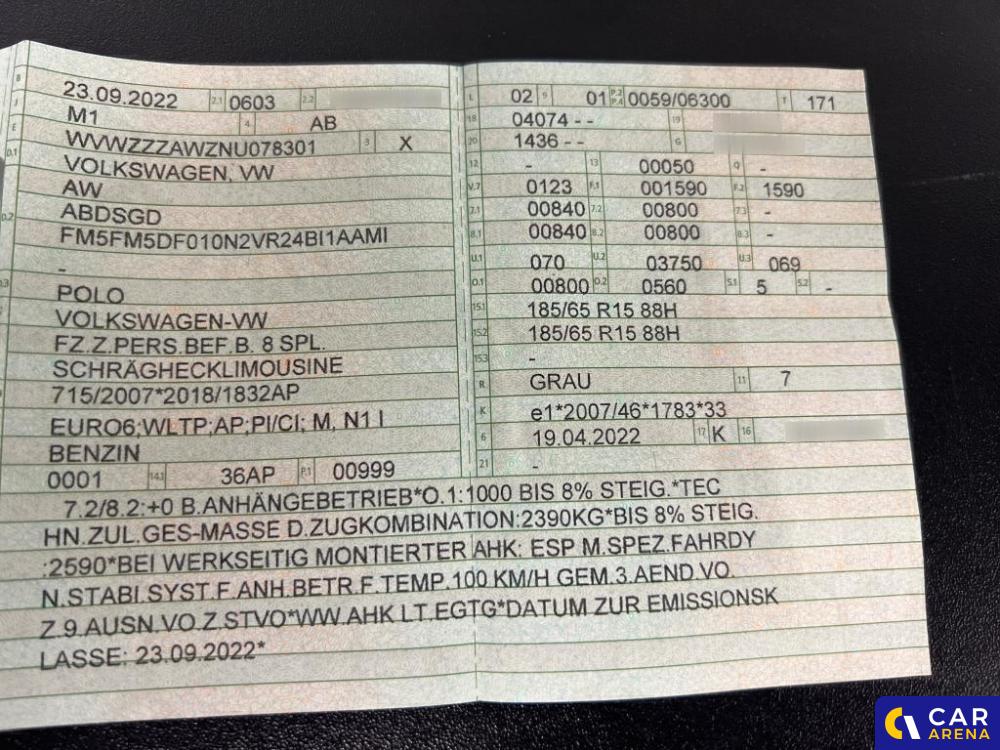 B 23.09.2022 2.1 0603 2.2
J M1 4 AB
E WVWZZZAWZNU078301 3 X
D.1 VOLKSWAGEN, VW
AW
D.2 ABDSGD
FM5FM5DF010N2VR24BI1AAMI
-
D.3 POLO
VOLKSWAGEN-VW
FZ.Z.PERS.BEF.B. 8 SPL.
SCHRÄGHECKLIMOUSINE
715/2007*2018/1832AP
EURO6;WLTP;AP;PI/CI; M, N1 I
BENZIN
0001 14.1 36AP P.1 00999
L 02 9 01 P.2 P.4 0059/06300 T 171
18 04074 - - 19
20 1436 - - G
12 - 13 00050 Q -
V.7 0123 F.1 001590 F.2 1590
7.1 00840 7.2 00800 7.3 -
8.1 00840 8.2 00800 8.3 -
U.1 070 U.2 03750 U.3 069
O.1 00800 O.2 0560 S.1 5 S.2 -
15.1 185/65 R15 88H
15.2 185/65 R15 88H
15.3 -
R GRAU 11 7
K e1*2007/46*1783*33
6 19.04.2022 17 K 16
21 -
7.2/8.2:+0 B.ANHÄNGEBETRIEB*O.1:1000 BIS 8% STEIG.*TEC
HN.ZUL.GES-MASSE D.ZUGKOMBINATION:2390KG*BIS 8% STEIG.
:2590*BEI WERKSEITIG MONTIERTER AHK: ESP M.SPEZ.FAHRDY
N.STABI.SYST.F.ANH.BETR.F.TEMP.100 KM/H GEM.3.AEND.VO.
Z.9.AUSN.VO.Z.STVO*WW.AHK LT.EGTG*DATUM ZUR EMISSIONSK
LASSE: 23.09.2022*
CAR
ARENA